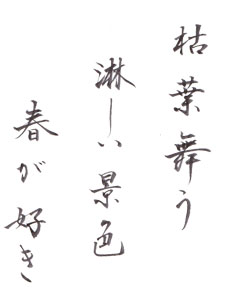 枯葉舞う
淋しい景色
春が好き